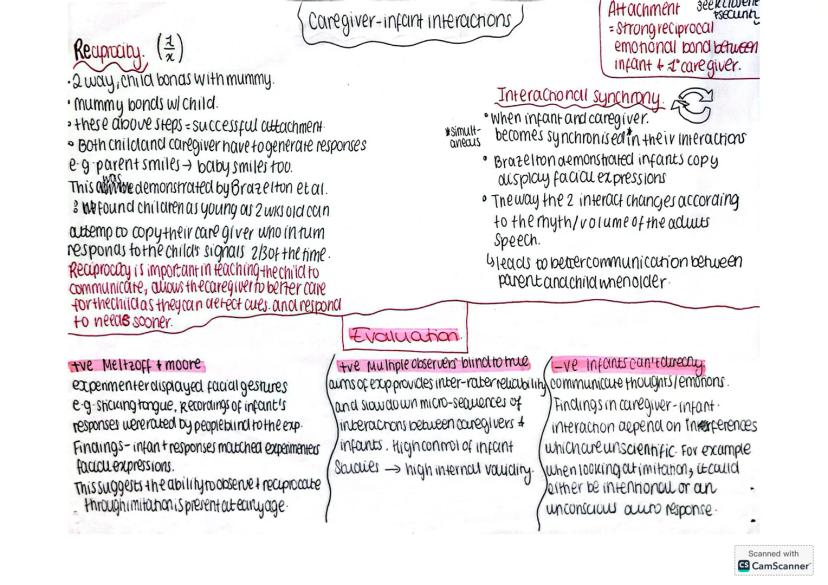 Caregiver-infant interactions
Attachment seek client
+security
= strong reciprocal
emotional bond between
infant + 1° caregiver.
Reciprocity. (1/x)
• 2 way, child bonds with mummy.
• mummy bonds w/ child.
• these above steps = successful attachment.
• Both child and caregiver have to generate responses
e.g parent smiles → baby smiles too.
This was demonstrated by Brazelton et al.
found children as young as 2 wks old can
attemp to copy their care giver who in turn
responds to the child's signals 2/3 of the time.
Reciprocity is important in teaching the child to
communicate, allows the caregiver to better care
for the child as they can detect cues. and respond
to needs sooner.
Interactional synchrony.
• When infant and caregiver.
becomes synchronised* in their interactions
*simult-
aneous
• Brazelton demonstrated infants copy
display facial expressions
• The way the 2 interact changes according
to the rhyth/volume of the adults
speech.
↳ leads to better communication between
parent and child when older.
Evaluation
+ve Meltzoff + moore
experimenter displayed facial gestures
e.g. sticking tongue. Recordings of infant's
responses were rated by people blind to the exp.
Findings - infant responses matched experimenters
facial expressions.
This suggests the ability to observe + reciprocate
through imitation is present at early age.
+ve Multiple observers blind to true
aims of exp provides inter-rater reliability
and slow down micro-sequences of
interactions between caregivers +
infants. High control of infant
Studies → high internal validity.
-ve Infants can't directly
communicate thoughts/emotions.
Findings in caregiver-infant
interaction depend on Interferences
which are unscientific. For example
when looking at imitation, it could
either be intentional or an
unconscious auto response.
Scanned with
CS CamScanner